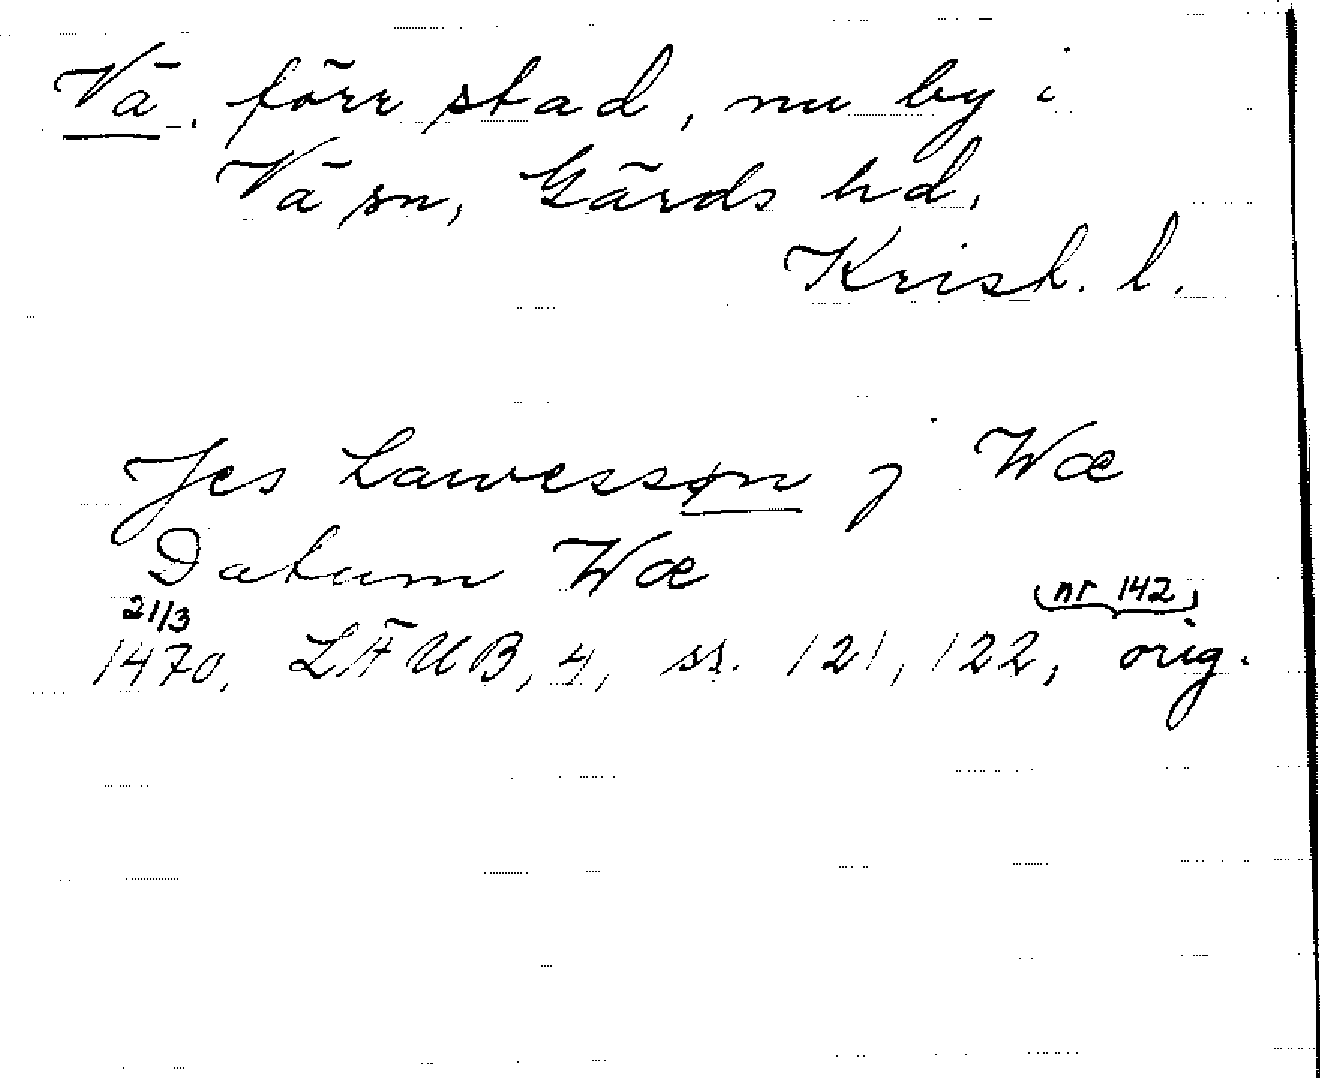 Vä, förr stad, nu by i
Vä sn, Gärds hd,
Krist. l.
Jes Lawessøn j Wæ
Datum Wæ
21/3 nr 142
1470, LÄUB, 4, ss. 121, 122, orig.